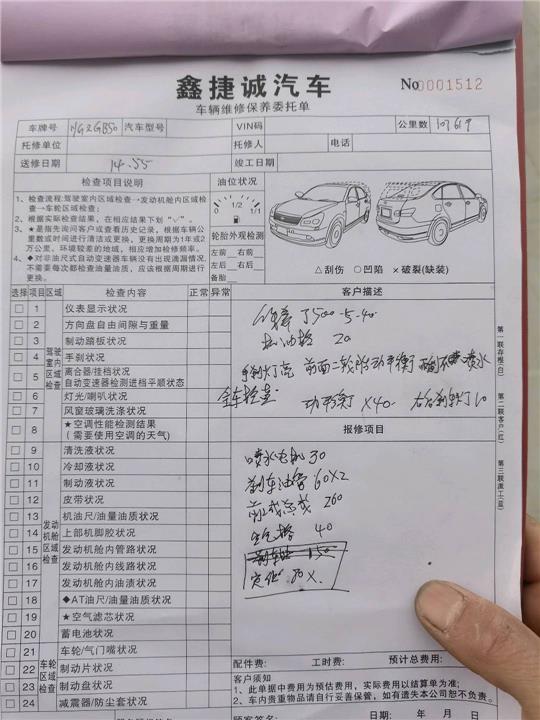 鑫捷诚汽车
No 0001512
车辆维修保养委托单
车牌号 汽车型号 VIN码 公里数 107619
托修单位 托修人 电话
送修日期 14.55 竣工日期
检查项目说明
1、检查流程:驾驶室内区域检查→发动机舱内区域检查→车轮区域检查。
2、根据实际检查结果，在相应结果下划“√”。
3、★是指先询问客户或查看历史记录，根据车辆公里数或时间进行清洁或更换，更换周期为1年或2万公里，环境较差的地域，相应增加检修频率。
4、◆对非油尺式自动变速器车辆没有出现滴漏情况，不需要每次都检查油量油质，应该根据周期进行更换。
油位状况
0 1/2 1/1
轮胎外观检测
左前 右前
左后 右后
备胎
△刮伤 ○凹陷 ×破裂(缺装)
选择 项目 区域 检查内容 正常 异常
驾驶室内区域检查
1 仪表显示状况
2 方向盘自由间隙与重量
3 制动踏板状况
4 手刹状况
5 离合器/挂档状况 自动变速器检测进档平顺状态
6 灯光/喇叭状况
7 风窗玻璃洗涤状况
8 ★空调性能检测结果 (需要使用空调的天气)
发动机舱区域检查
9 清洗液状况
10 冷却液状况
11 制动液状况
12 皮带状况
13 机油尺/油量油质状况
14 上部机脚胶状况
15 发动机舱内管路状况
16 发动机舱内线路状况
17 发动机舱内油渍状况
18 ◆AT油尺/油量油质状况
19 ★空气滤芯状况
20 蓄电池状况
车轮区域检查
21 车轮/气门嘴状况
22 制动片状况
23 制动盘状况
24 减震器/防尘套状况
客户描述
20
手刹灯亮 前面二轮胎动平衡 喷水
全车检查 动平衡 X40 右后刹车灯10
报修项目
喷水电机 30
刹车油管 60X2
260
空气格 40
150
定位 80 X
第一联存根(白)
第二联客户(红)
第三联派工(蓝)
配件费: 工时费: 预计总费用:
客户须知
1、此单据中费用为预估费用，实际费用以结算单为准;
2、车内贵重物品请自行妥善保管，如有遗失本公司恕不负责。
客户签名: 日期: 年 月 日